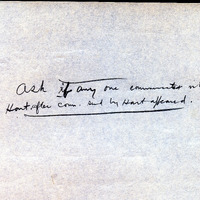 Ask if any one communicated wi
Hart, after com. sent by Hart appeared.